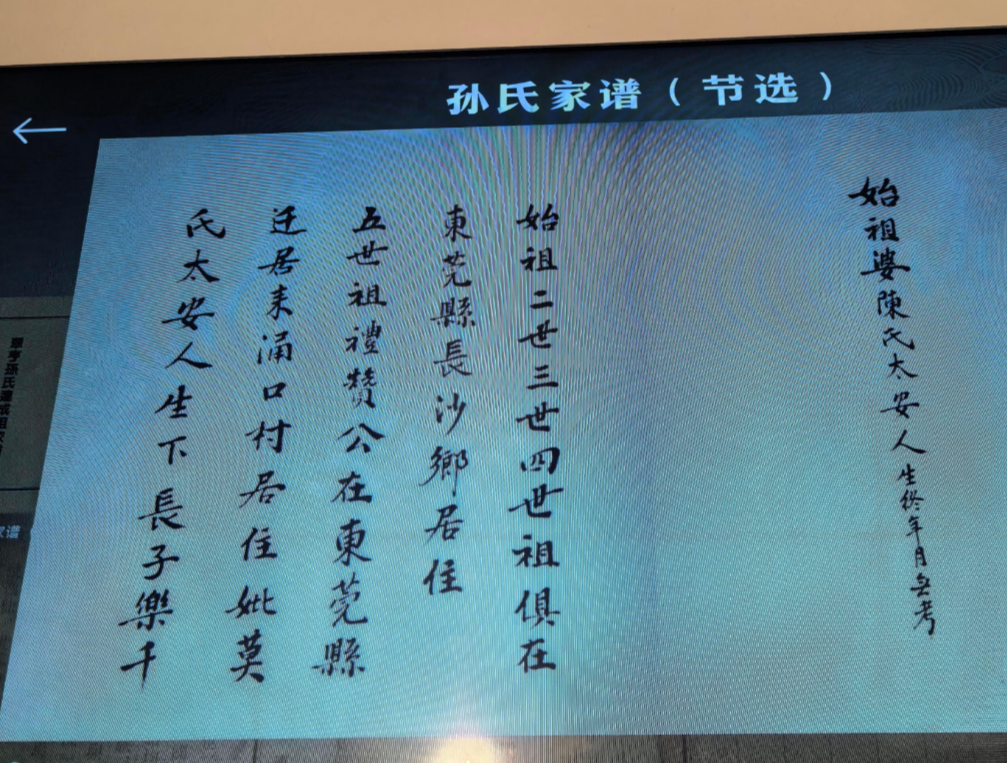 孙氏家谱（节选）
始祖婆陳氏太安人生終年月无考
始祖二世三世四世祖俱在
東莞縣長沙鄉居住
五世祖禮贊公在東莞縣
迁居来涌口村居住妣莫
氏太安人生下長子樂千
家谱